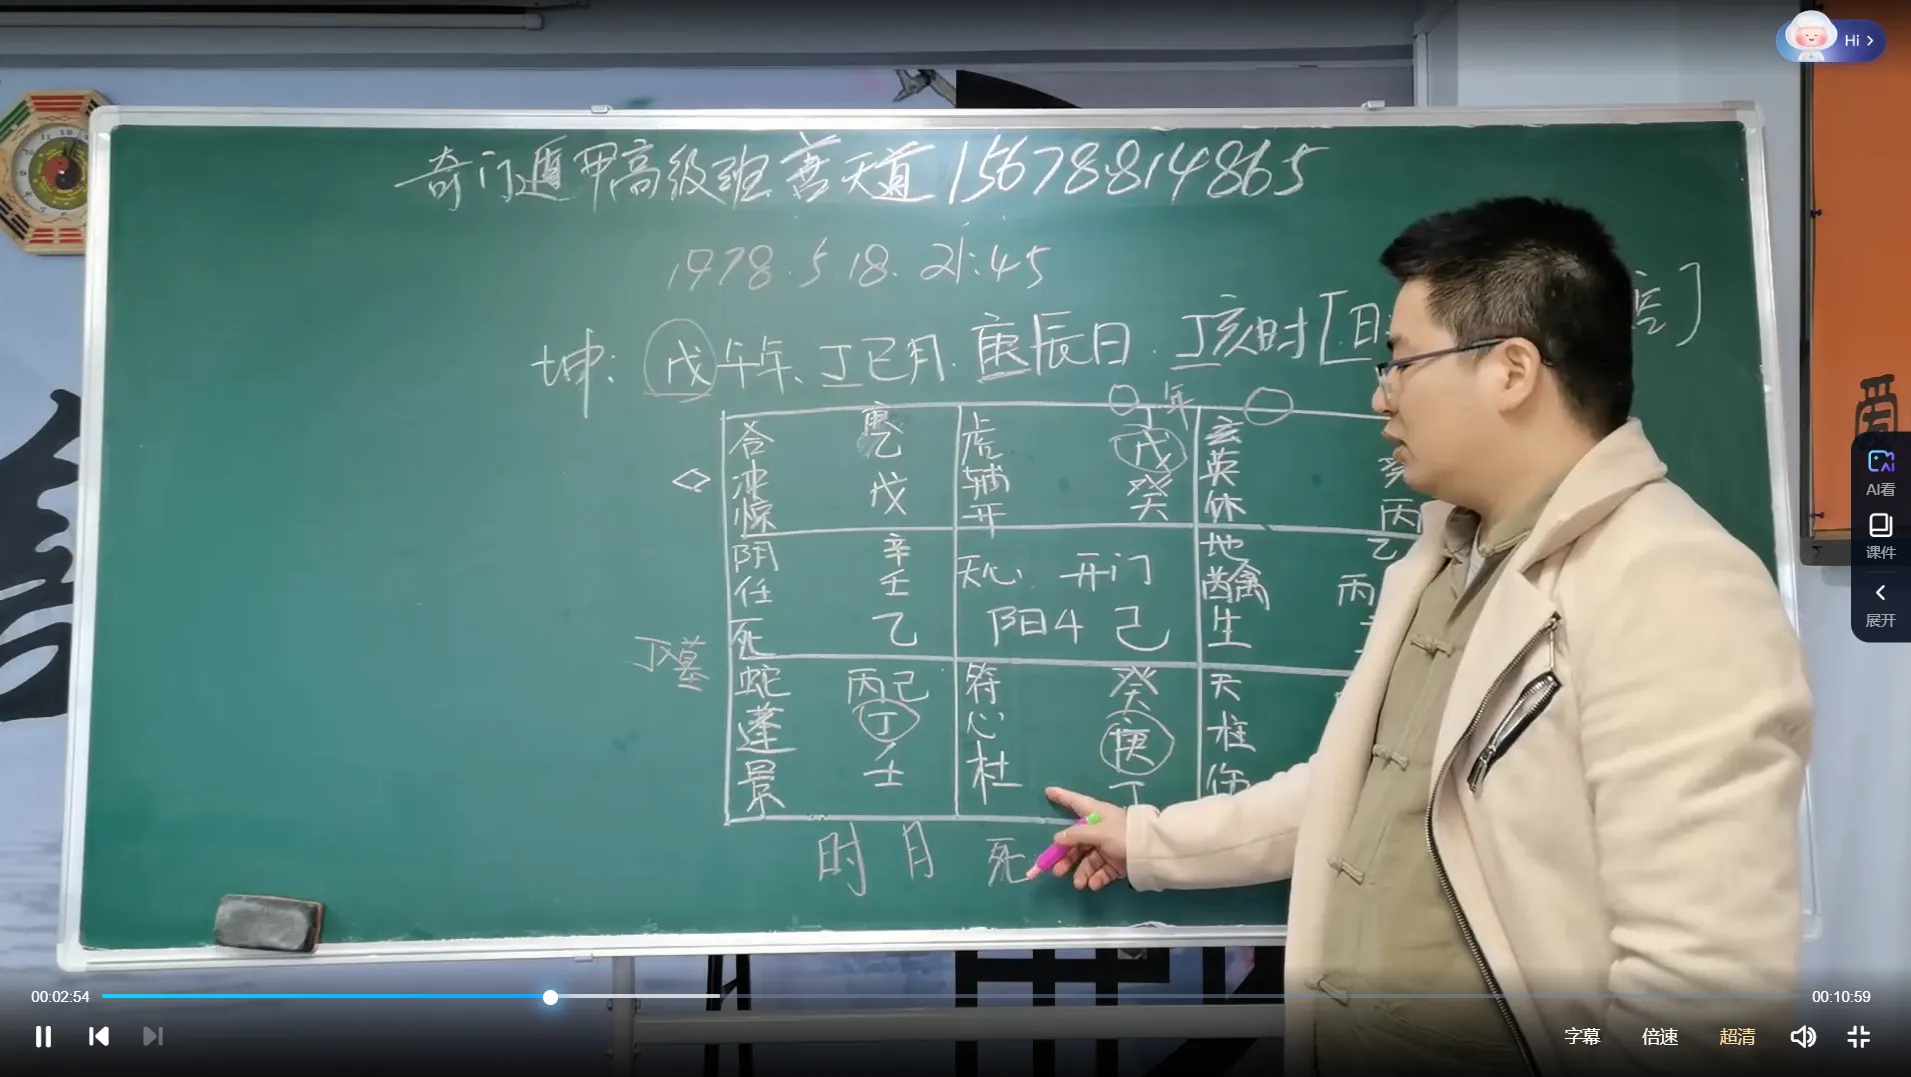 Hi >
奇门遁甲高级班 善天道 15678814865
1978.5.18.21:45
坤: 戊午年、丁巳月.庚辰日.丁亥时[日
店]
年
合 乙 虎 戊 玄 癸
冲 戊 辅 癸 英 丙
惊 开 休
阴 辛 天心 开门 地 乙
任 壬 阳4 己 芮禽 丙
死 乙 生
丁墓
蛇 丙己 符 癸 天
蓬 丁 心 庚 柱
景 壬 杜 丁 伤
时 月 死
爱
AI看
课件
展开
00:02:54
00:10:59
字幕 倍速 超清